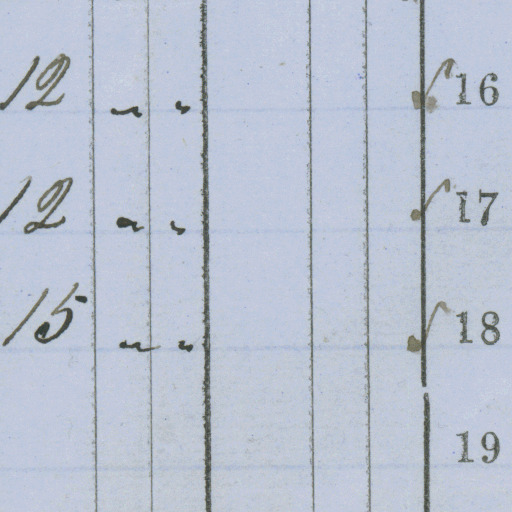 12 " " 16
12 " " 17
15 " " 18
19